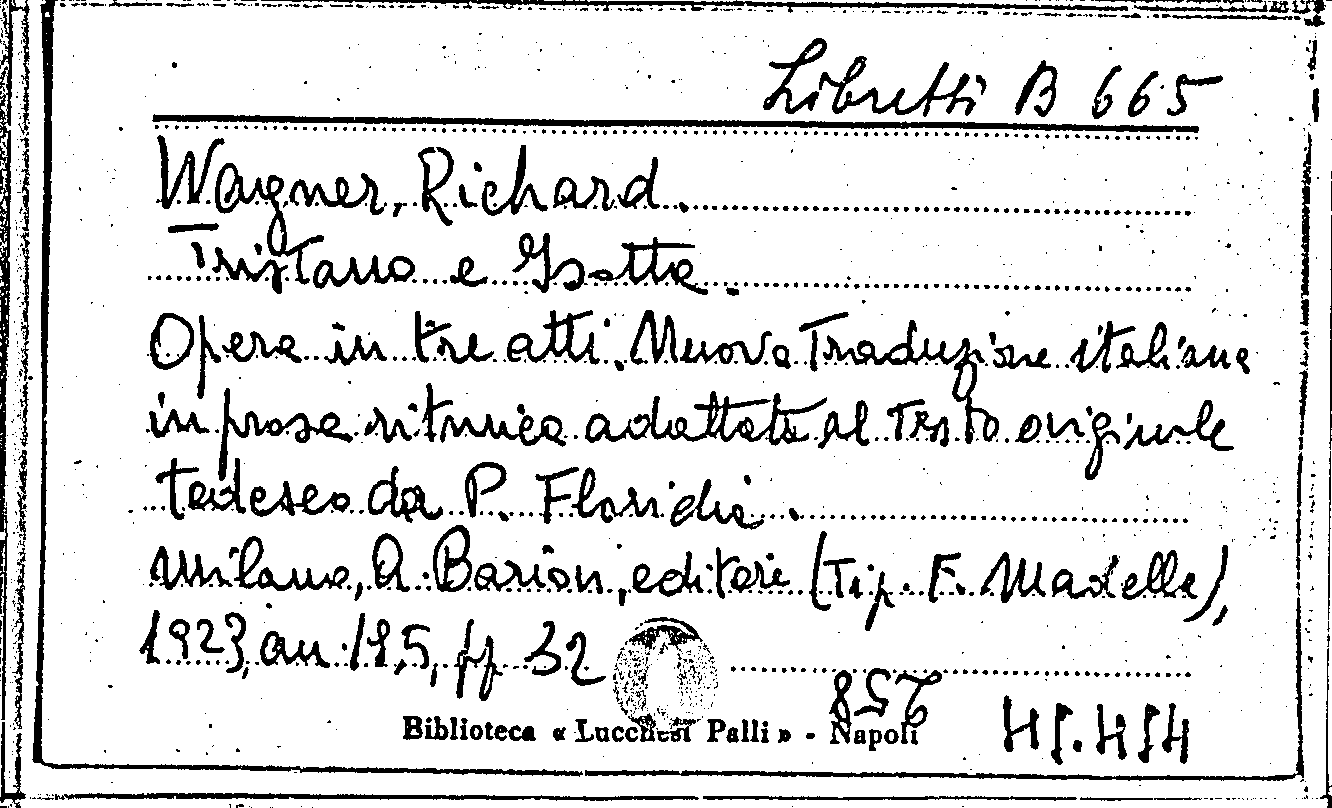 Libretti B 665
Wagner, Richard.
Tristano e Isotta.
Opera in tre atti. Nuova Traduzione italiana
in prosa ritmica adattata al Testo originale
tedesco da P. Floridia.
Milano, A. Barion, editore (Tip. F. Madella),
1923, cm. 19,5, pp. 32
258
Biblioteca « Lucchesi Palli » - Napoli